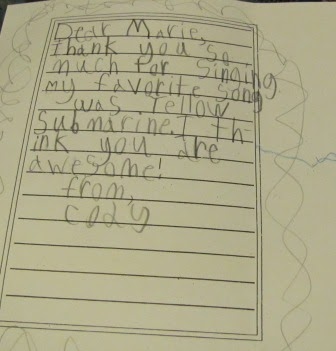 Dear Marie,
Thank you so
much for singing
my favorite song
was Yellow
Submarine. I th-
ink you are
awesome!
from,
Cody